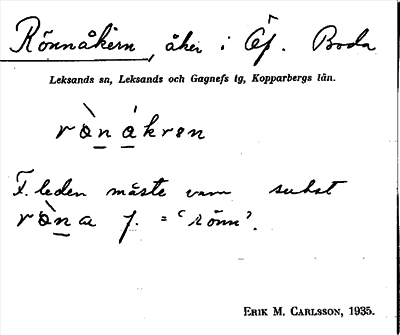 Rönnåkern, åker i Öf. Boda
Leksands sn, Leksands och Gagnefs tg, Kopparbergs län.
rò̠n á̠kren
F. leden måste vara subst
rò̠na f. = 'rönn'.
ERIK M. CARLSSON, 1935.